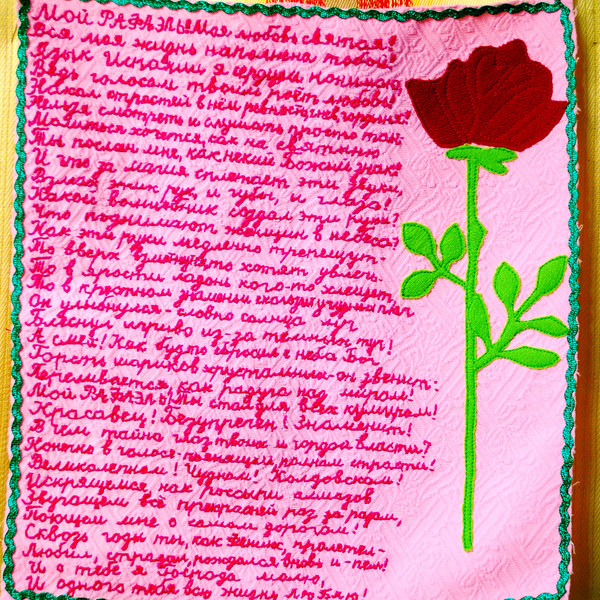 Мой РАФАЭЛЬ! Моя любовь святая!
Вся моя жизнь наполнена тобой!
Язык Испании я сердцем понимаю,
Ведь голосом твоим поёт любовь!
Накал страстей в нём, ревность, гнев, гордыня!
Нельзя смотреть и слушать просто так
Молиться хочется, как на святыню
Ты послан мне, как некий Божий знак
И что за магия сплетает эти звуки,
В глаз, них рук, и губы, и глаза!
Какой волшебник создал эти руки,
Что поднимают женщин в небеса?
Как эти руки медленно трепещут-
То вверх взметнуться хотят, увлечь,
То в ярости ладони кого-то хлещут,
То в крестном знамении скользят у плеч
Он улыбнулся-словно солнца луч
Блеснул игриво из-за темных туч!
А смех! Как будто бросил с неба Бог
Горсть шариков хрустальных-он звенит:
Переливается, как радуга над миром!
Мой РАФАЭЛЬ! Ты стал для всех кумиром!
Красавец! Безупречен! Знаменит!
В чём тайна глаз твоих и гордой власти?
Конечно в голосе-поющем, полном страсти!
Великолепном! Чудном! Колдовском!
Искрящемся, как россыпи алмазов
Звучащем всё прекрасней раз за разом,
Поющем мне о самом дорогом!
Сквозь годы ты, как Феникс пролетел-
Любил, страдал, рождался вновь и-пел!
И о тебе я Господа молю,
И одного тебя всю жизнь ЛЮБЛЮ!